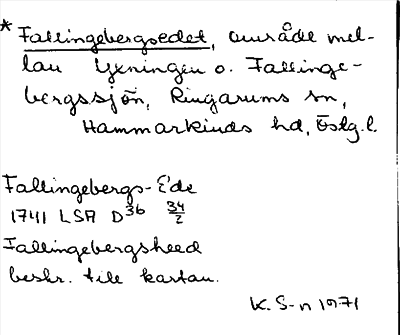 * Fallingebergsedet, område mel-
lan Yxningen o. Fallinge-
bergssjön, Ringarums sn,
Hammarkinds hd, Östg.l.
Fallingebergs-Ede
1741 LSA D36 34/2
Fallingebergsheed
beskr. till kartan.
K. S-n 1971